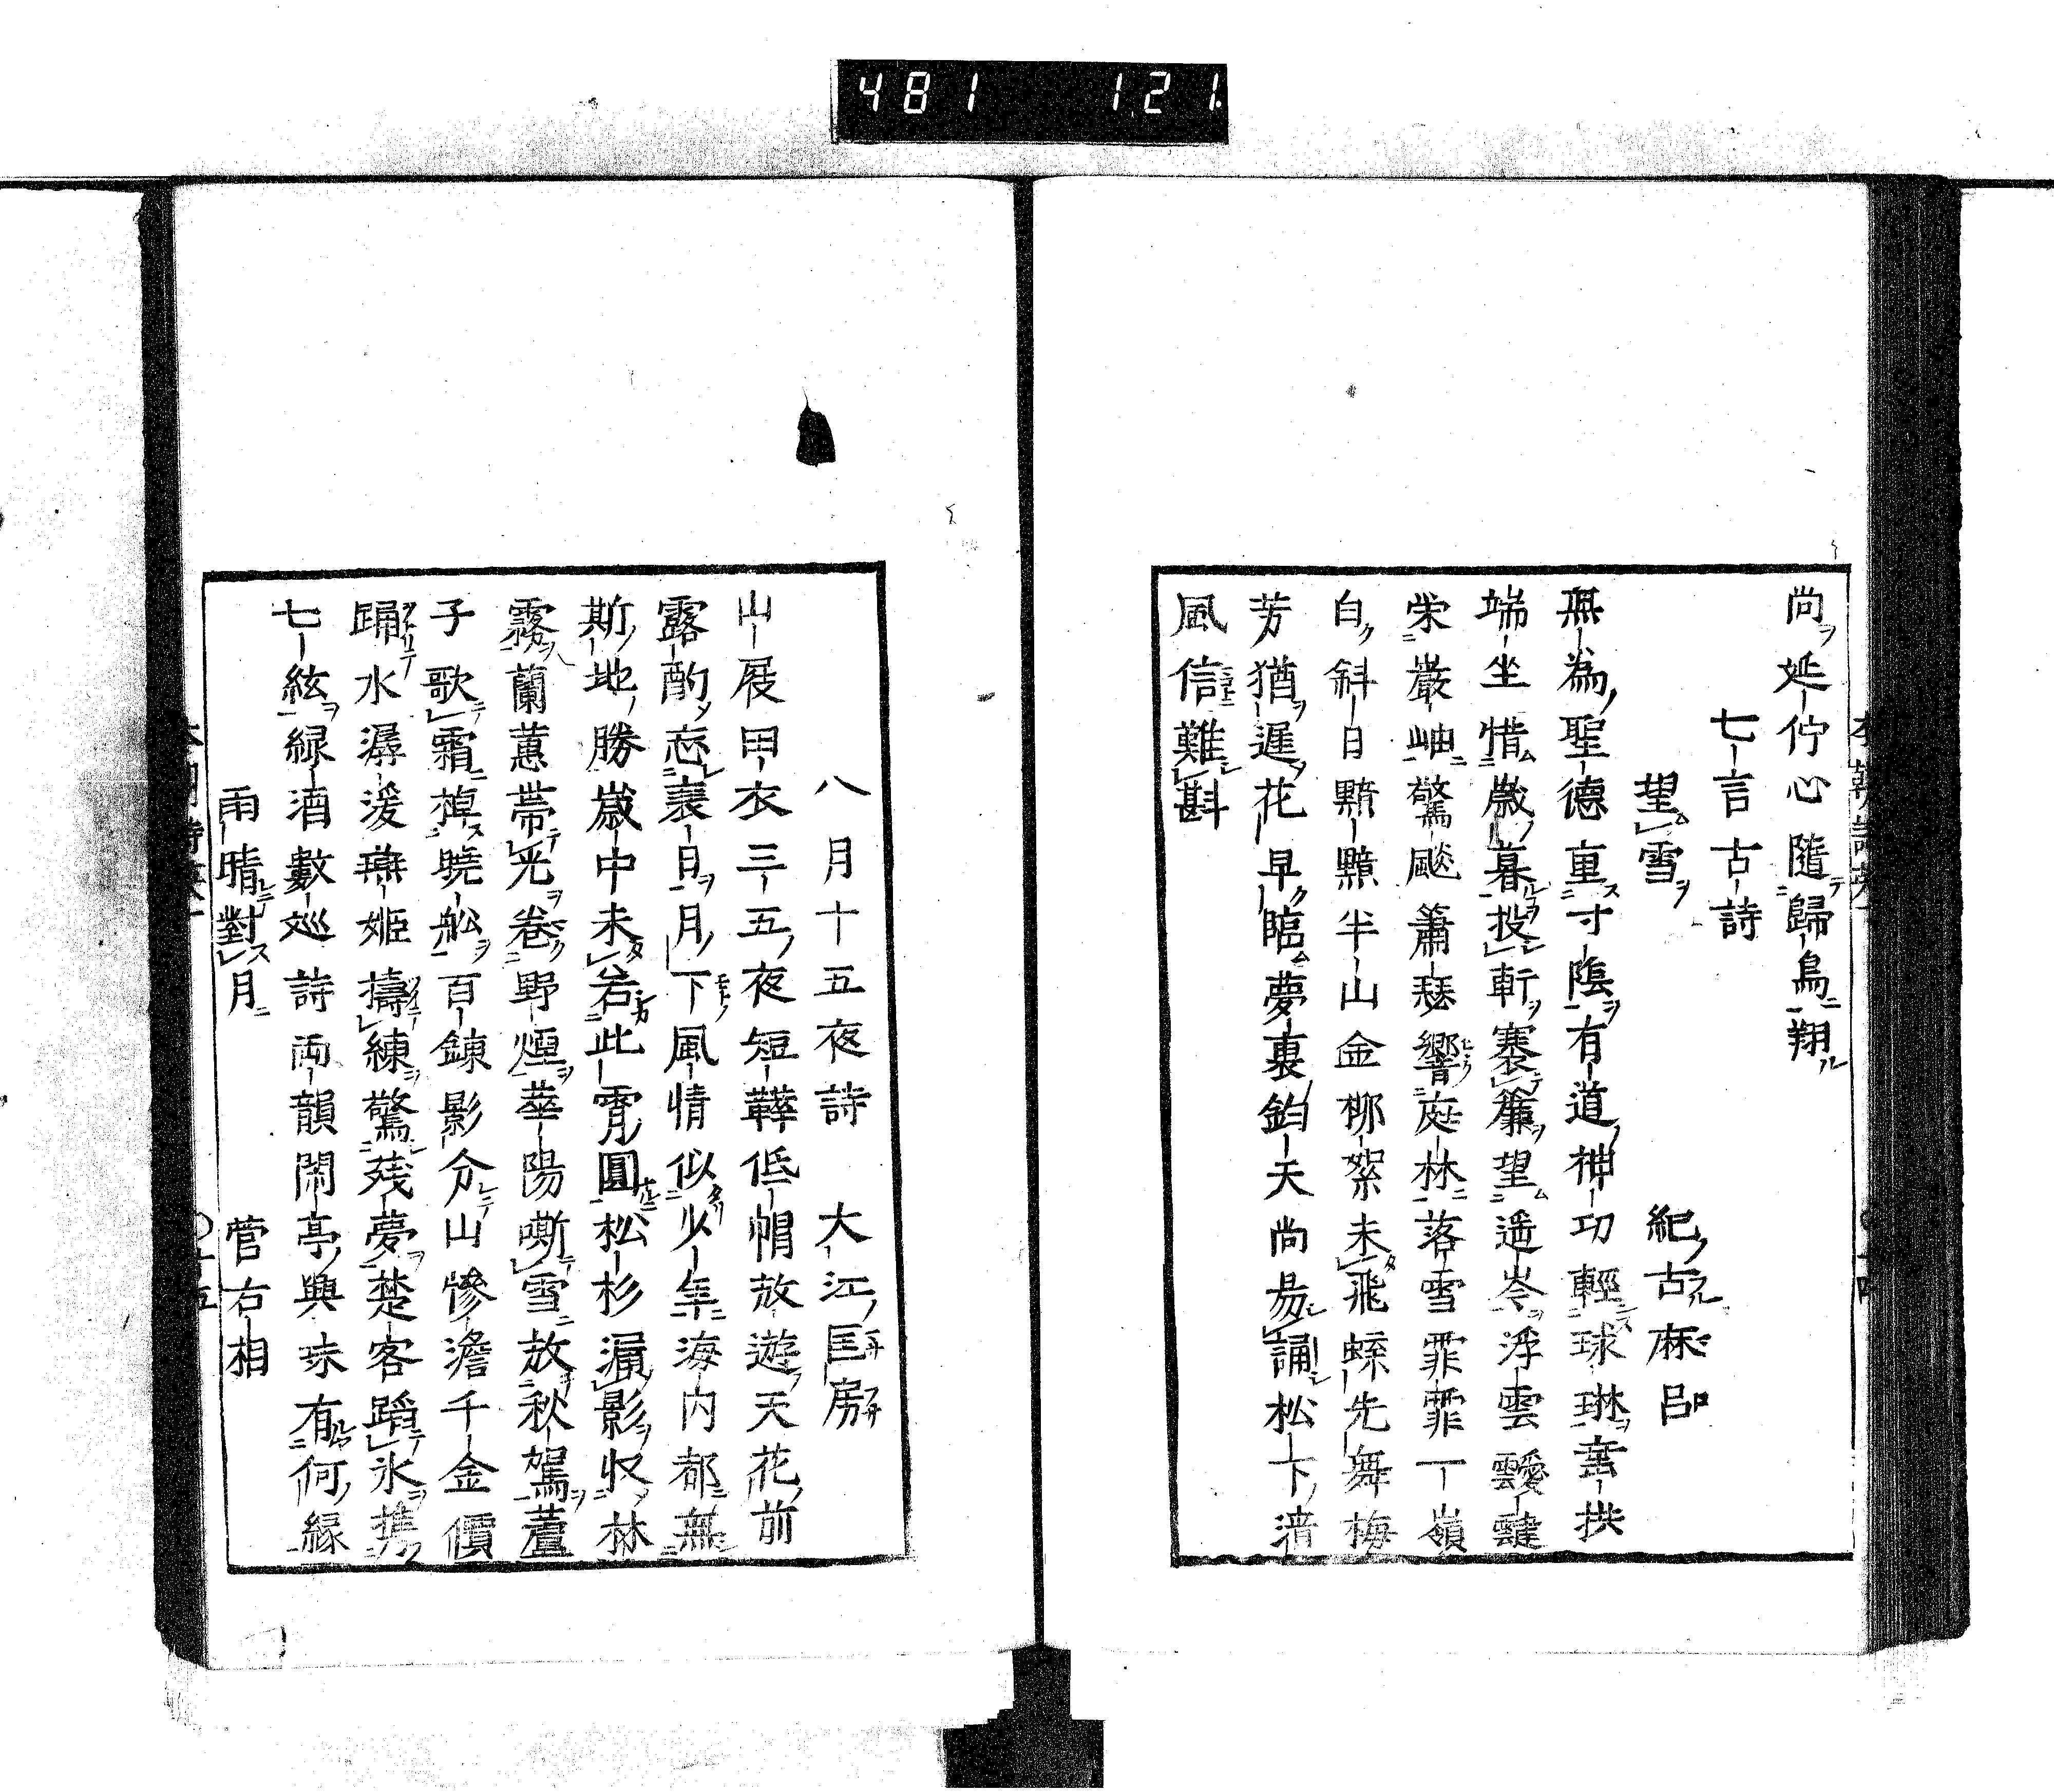 481 121
尚延佇心隨歸鳥翔
七言古詩
望雪 紀古麻呂
無為聖德重寸陰有道神功輕球琳垂拱
端坐惜歳暮投軒褰簾望遥岑浮雲靉靆
栄巌岫驚飈簫瑟響庭林落雪霏霏一嶺
白斜日黯黯半山金柳絮未飛蝶先舞梅
芳猶遅花早臨夢裏鈞天尚易誦松下清
風信難斟
八月十五夜詩 大江匡房
山展甲衣三五夜短韡低帽放遊天花前
露酌忘裏日月下風情似少年海内都無
斯地勝歳中未若此宵圓松杉漏影収林
霧蘭蕙帯光卷野煙華陽嘶雪放秋駕蘆
子歌霜棹曉舩百錬影分山慘澹千金價
踊水潺湲燕姫擣練驚残夢楚客蹈氷携
七絃緑酒數巡詩両韻閑亭興味有何縁
雨晴對月 菅右相